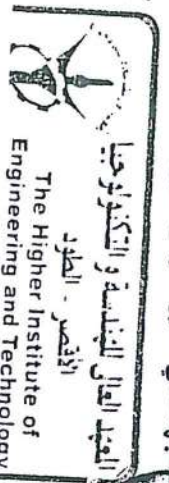 المعهد العالي للهندسة والتكنولوجيا
الأقصر - الطود
The Higher Institute of
Engineering and Technology